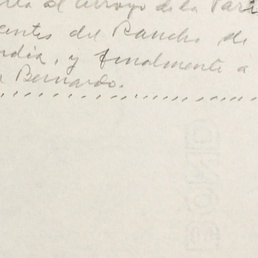 del arroyo de la Par
del Rancho de
y finalmente a
Bernardo.